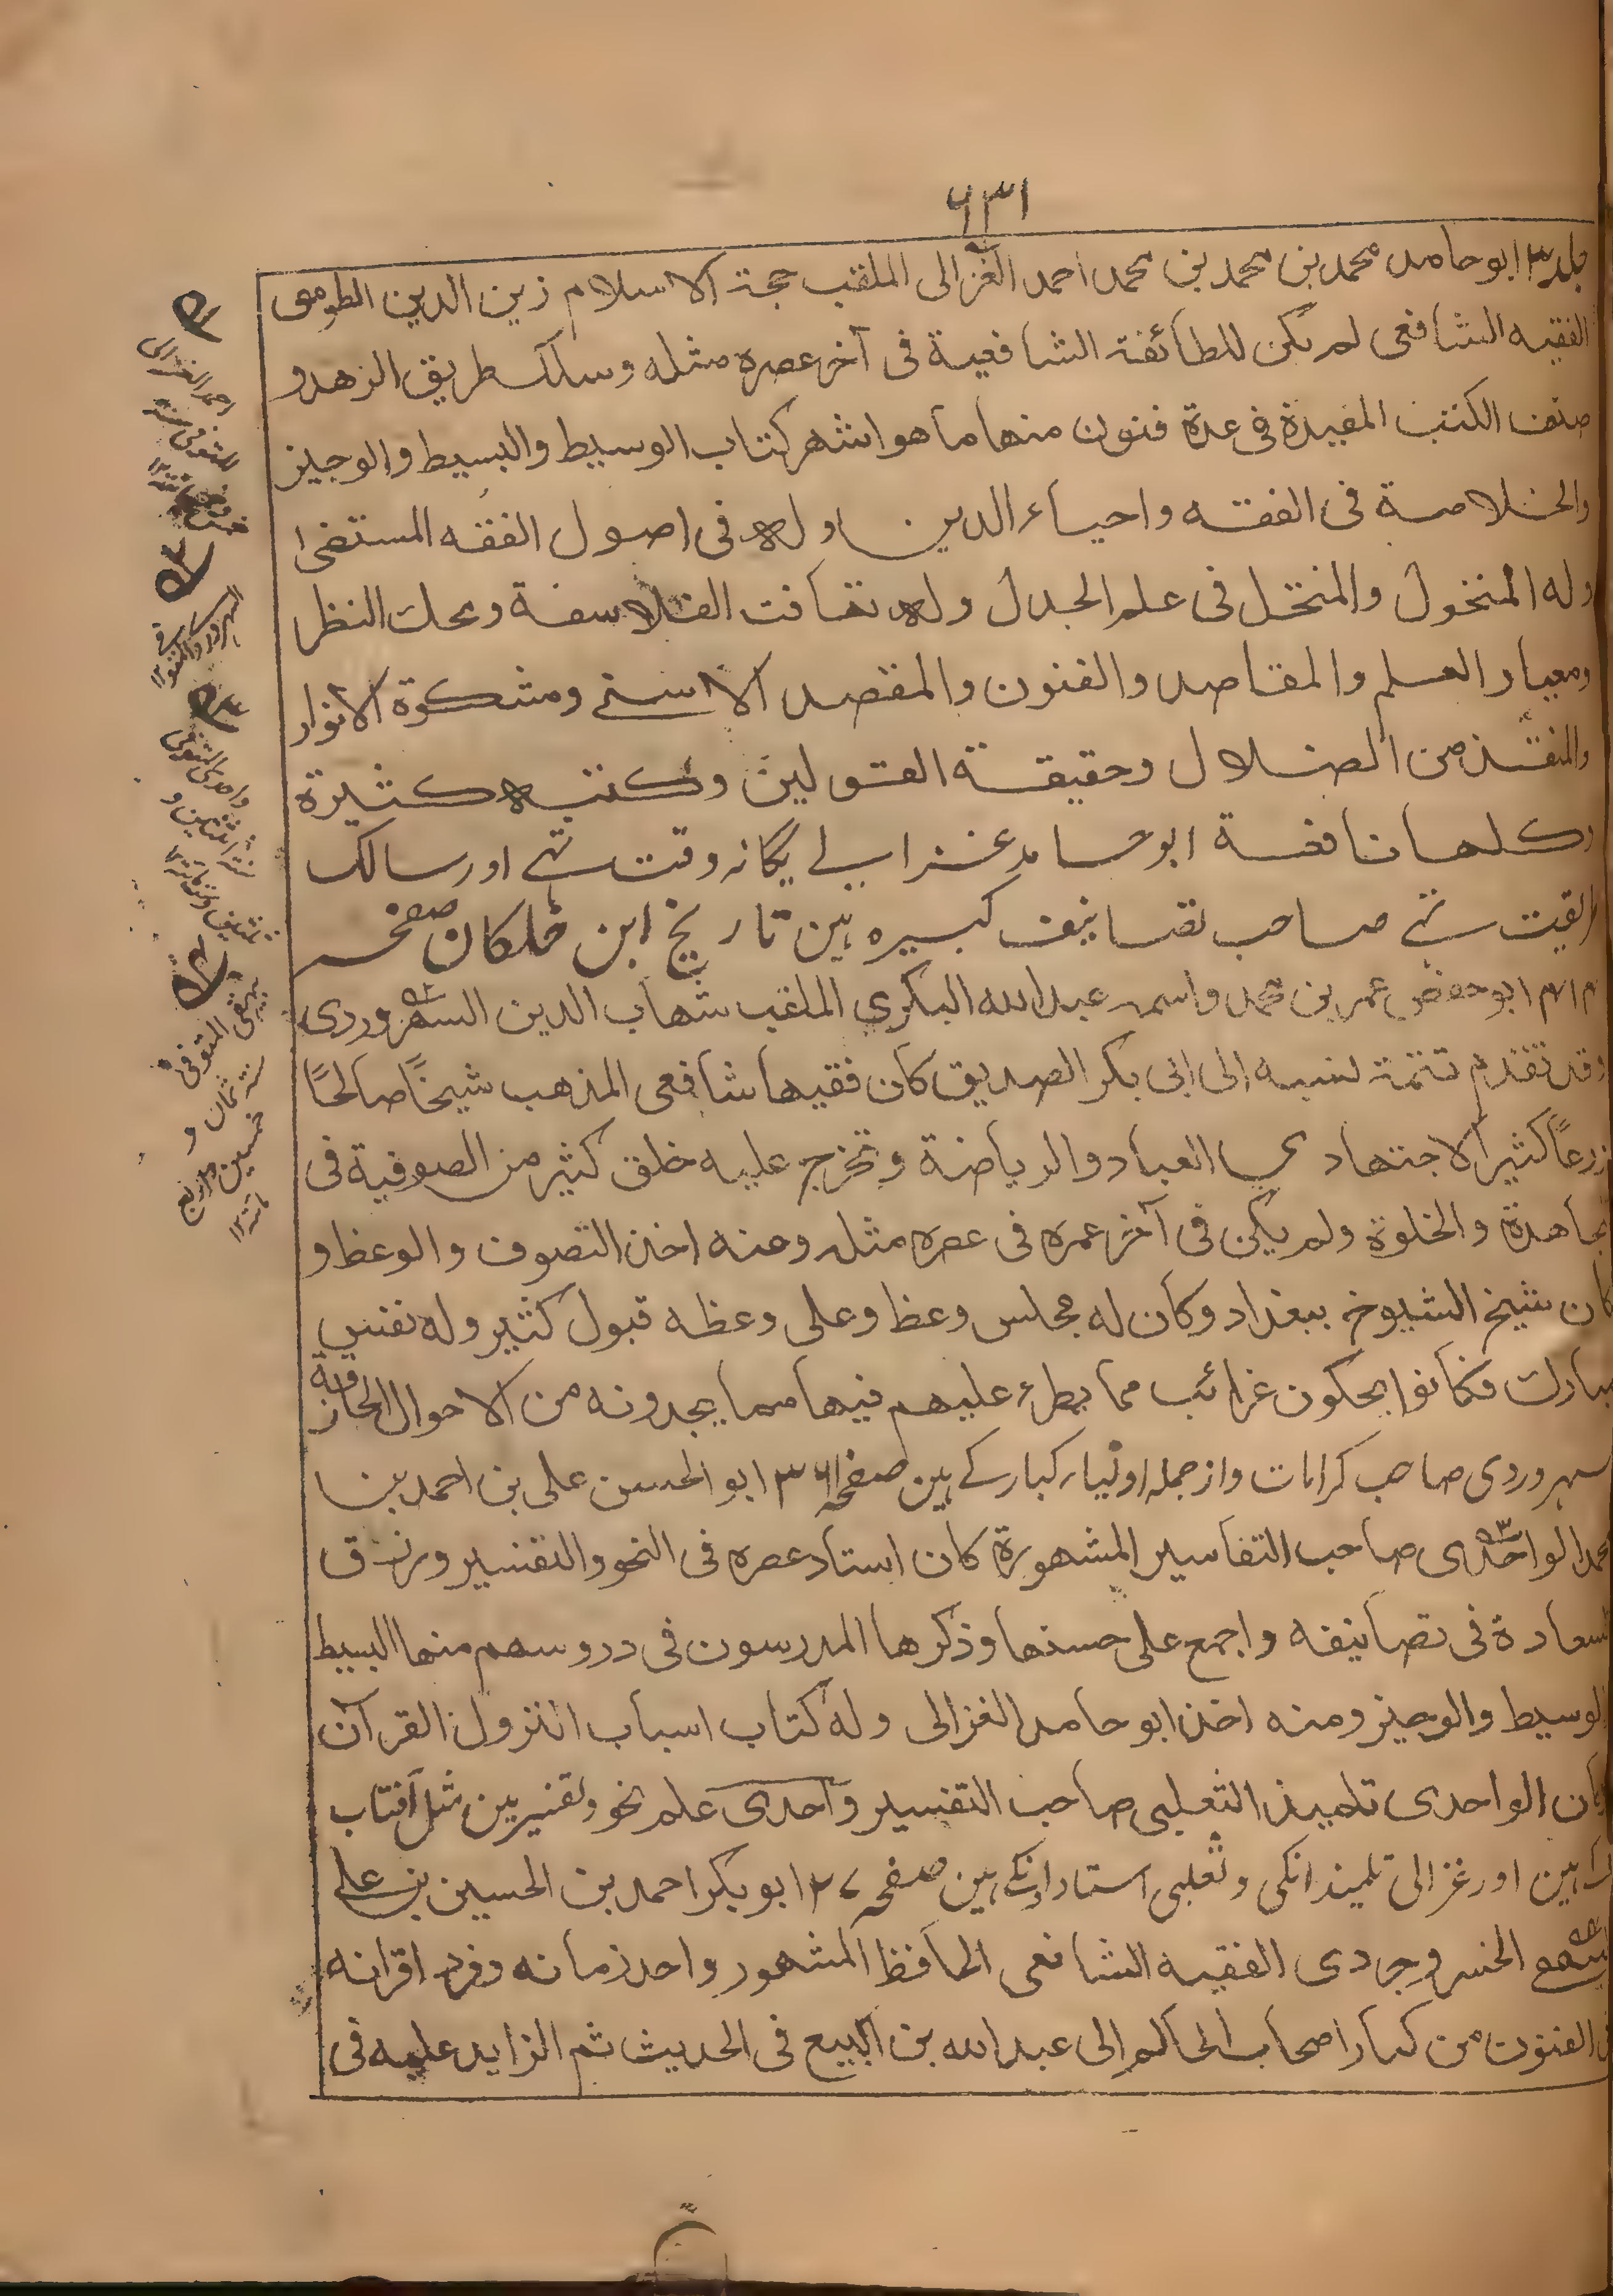 ٦٣١
جلد ٣ ابو حامد محمد بن محمد بن محمد احمد الغزالى الملقب حجة الاسلام زين الدين الطوسى
الفقيه الشافعى لم يكن للطائفة الشافعية فى آخر عصره مثله وسلك طريق الزهد و
صنف الكتب المفيدة فى عدة فنون منها ما هو اشهر كتاب الوسيط والبسيط والوجيز
والخلاصة فى الفقه واحياء الدين وله فى اصول الفقه المستصفى
وله المنخول والمنتخل فى علم الجدل وله تهافت الفلاسفة ومحك النظر
ومعيار العلم والمقاصد والفنون والمقصد الاسنى ومشكوة الانوار
والمنقذ من الضلال وحقيقة القولين وكتبه كثيرة
وكلها نافعة ابو حامد غزالى يگانه وقت تهے اور سالك
طريقت تهے صاحب تصانيف كبيره ہین تاريخ ابن خلكان صفحه
٤١٤ ابو حفص عمر بن محمد واسمه عبد الله البكرى الملقب شهاب الدين السهروردى
وقد تقدم تتمة نسبه الى ابى بكر الصديق كان فقيها شافعى المذهب شيخًا صالحًا
ورعًا كثير الاجتهاد فى العباد والرياضة وتخرج عليه خلق كثير من الصوفية فى
المجاهدة والخلوة ولم يكن فى آخر عمره فى عصره مثله ومنه اخذ التصوف والوعظ و
كان شيخ الشيوخ ببغداد وكان له مجلس وعظ وعلى وعظه قبول كثير وله نفس
مبارك فكانوا يحكون غرائب مما يطرء عليهم فيها مما يجدونه من الاحوال الخارقة
سهروردى صاحب كرامات واز جمله اولياء كبار كے ہین صفحه ٣٦١ ابو الحسن على بن احمد بن
محمد الواحدى صاحب التفاسير المشهورة كان استاد عصره فى النحو والتفسير ورزق
السعادة فى تصانيفه واجمع على حسنها وذكرها المدرسون فى دروسهم منها البسيط
والوسيط والوجيز ومنه اخذ ابو حامد الغزالى وله كتاب اسباب النزول القرآن
كان الواحدى تلميذ الثعلبى صاحب التفسير واحدى علم نحو وتفسير مین مثل آفتاب
كے ہین اور غزالى تلميذ انكى وثعلبى استاد اونكے ہین صفحه ٢٧ ابو بكر احمد بن الحسين بن على
البيهقى الخسروجردى الفقيه الشافعى الحافظ المشهور واحد زمانه وفرد اقرانه
فى الفنون من كبار اصحاب الحاكم الى عبد الله بن البيع فى الحديث ثم الزايد عليه فى
المتوفى سنة
واحدى المتوفى
بيهقى المتوفى
سنة ثمان و
خمسين واربع
مائة ١٢